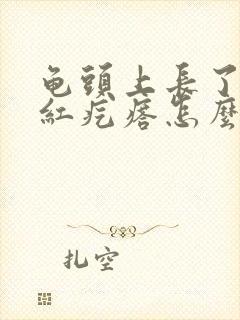 龟頭上長了
紅疙瘩怎麼
扎空